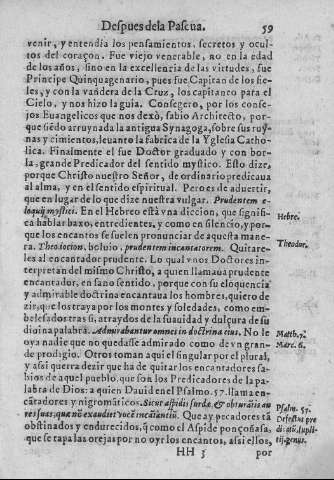 Despues dela Pascua. 59
venir, y entendia los pensamientos, secretos y ocul-
tos del coraçon. Fue viejo venerable, no en la edad
de los años, sino en la excelencia de las virtudes, fue
Principe Quinquagenario, pues fue Capitan de los fie-
les, y con la vandera de la Cruz, los capitaneo para el
Cielo, y nos hizo la guia. Consegero, por los conse-
jos Euangelicos que nos dexò, sabio Architecto, por-
que siẽdo arruynada la antigua Synagoga, sobre sus ruy-
nas y cimientos, leuanto la fabrica de la Yglesia Catho-
lica. Finalmente el fue Doctor graduado y con bor-
la, grande Predicador del sentido mystico. Esto dize,
porque Christo nuestro Señor, de ordinario predicaua
al alma, y en el sentido espiritual. Pero es de aduertir,
que en lugar de lo que dize nuestra vulgar. Prudentem e-
loquij mystici. En el Hebreo està vna diccion, que signifi-
ca hablar baxo, entredientes, y como en silencio, y por-
que los encantos se suelen pronunciar de aquesta mane-
ra. Theodocion, boluio, prudentem incantatorem. Quitare-
les al encantador prudente. Lo qual vnos Doctores in-
terpretan del mismo Christo, a quien llamaua prudente
encantador, en sano sentido, porque con su eloquencia
y admirable doctrina encantaua los hombres, quiero de-
zir, que los traya por los montes y soledades, como em-
belesados tras si, atraydos de la suauidad y dulçura de su
diuina palabra. Admirabantur omnes in doctrina eius. No le
oya nadie que no quedasse admirado como de vn gran-
de prodigio. Otros toman aqui el singular por el plural,
y assi querra dezir que ha de quitar los encantadores sa-
bios de aquel pueblo, que son los Predicadores de la pa-
labra de Dios: a quien Dauid en el Psalmo. 57. llama en-
cãtadores y nigromãticos. Sicut aspidis surdæ, & obturãtis au
res suas, que nõ exaudiet vocẽ incãtantiũ. Que ay pecadores tã
obstinados y endurecidos, q̃ como el Aspide ponçoñosa,
que se tapa las orejas por no oyr los encantos, assi ellos,
HH 3 por
Hebre.
Theodor.
Matth. 7.
Marc. 6.
Psalm. 57.